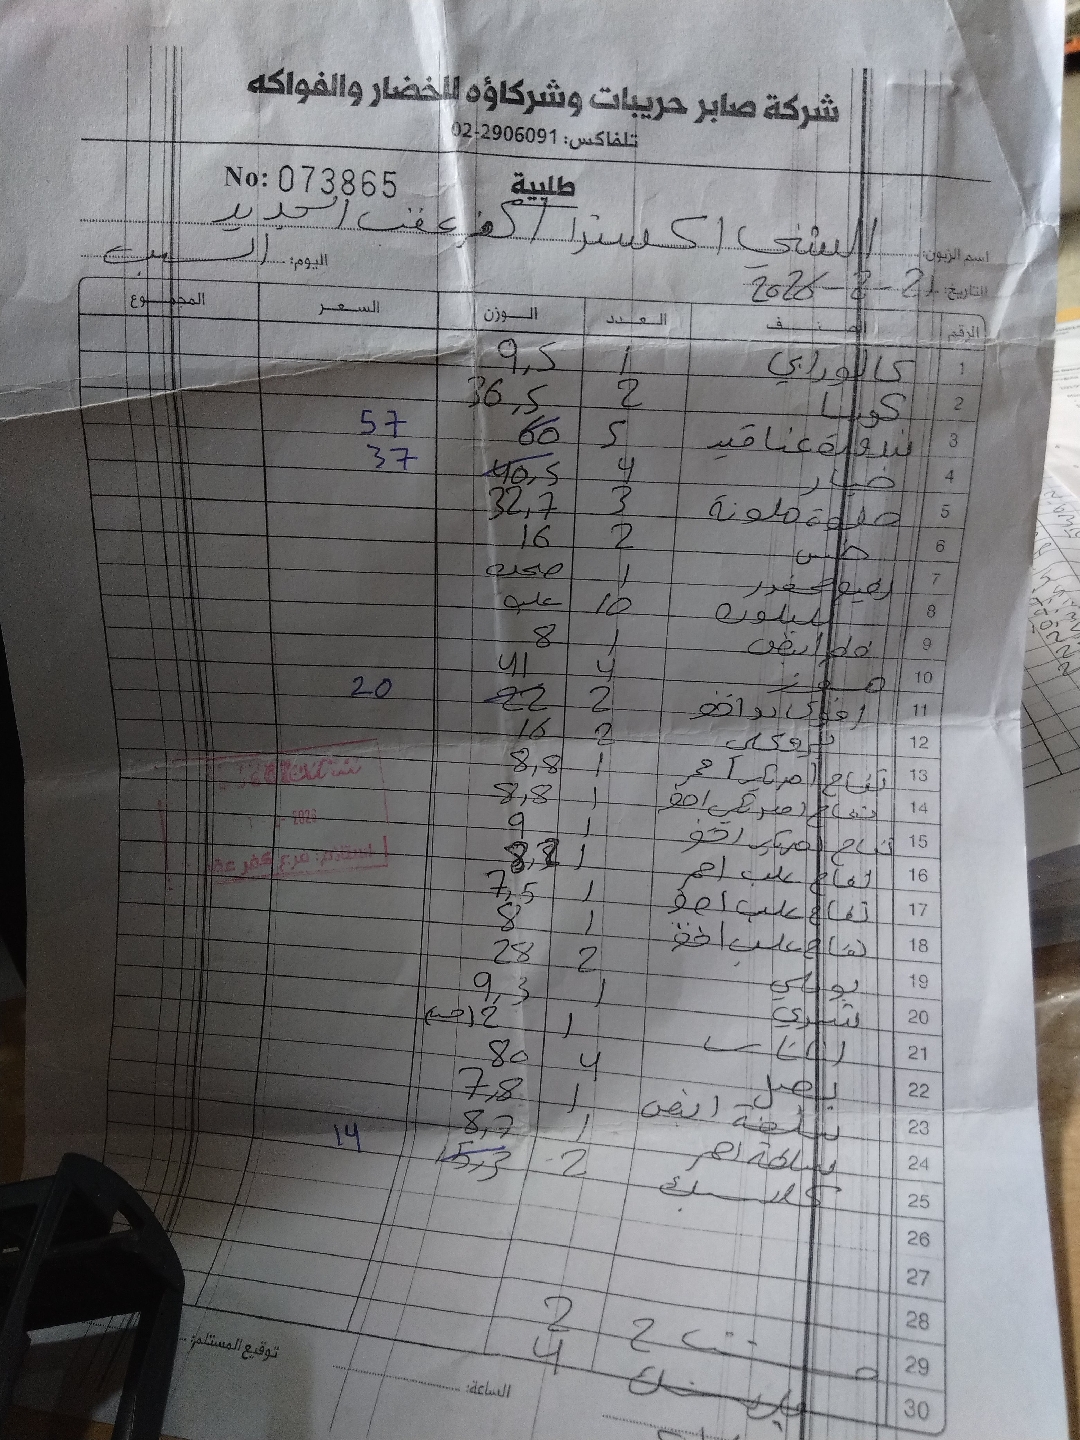 شركة صابر حريبات وشركاؤه للخضار والفواكه
تلفاكس: 02-2906091
No: 073865
طلبية
اسم الزبون: الشني اكسترا / كفر عقب الجديد
اليوم: السبت
التاريخ: 21-2-2026
الرقم الصنف العدد الوزن السعر المجموع
1 كالورابي 1 9,5
2 كوسا 2 36,5
3 بندورة عناقيد 5 60 57
4 خيار 4 40,5 37
5 حلوة ملونة 3 32,7
6 خس 2 16
7 1
8 10 علبه
9 ابيض 1 8
10 موز 4 41
11 2 22 20
12 بروكلي 2 16
13 تفاح امريكي احمر 1 8,8
14 تفاح امريكي اصفر 1 8,8
15 تفاح امريكي اخضر 1 9
16 تفاح علب احمر 1
17 تفاح علب اصفر 1 7,5
18 تفاح علب اخضر 1 8
19 بوملي 2 28
20 شيري 1 9,3
21 اناناس 1 2
22 بصل 4 80
23 ابيض 1 7,8
24 احمر 1 8,7
25 2 15,3 14
26
27
28
29 2 2
30 4
توقيع المستلم:
الساعة:
استلام: فرع كفر عقب